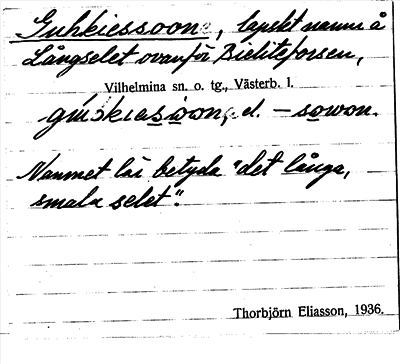 Guhkiessoon, lapskt namn å
Långselet ovanför Bieliteforsen,
Vilhelmina sn. o. tg., Västerb. l.
el. – sowon.
Namnet lär betyda "det långa,
smala selet".
Thorbjörn Eliasson, 1936.